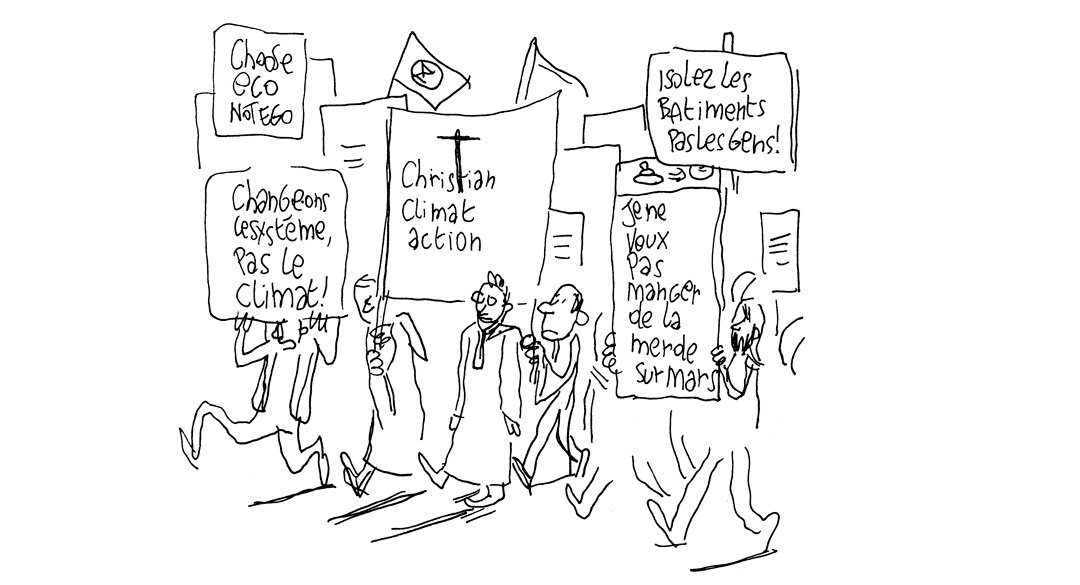 Choose
eco
NOT EGO
Changeons
le système,
Pas le
climat!
Christian
Climat
action
Isolez les
BAtiments
Pas les Gens!
Je ne
veux
Pas
manger
de la
merde
sur Mars